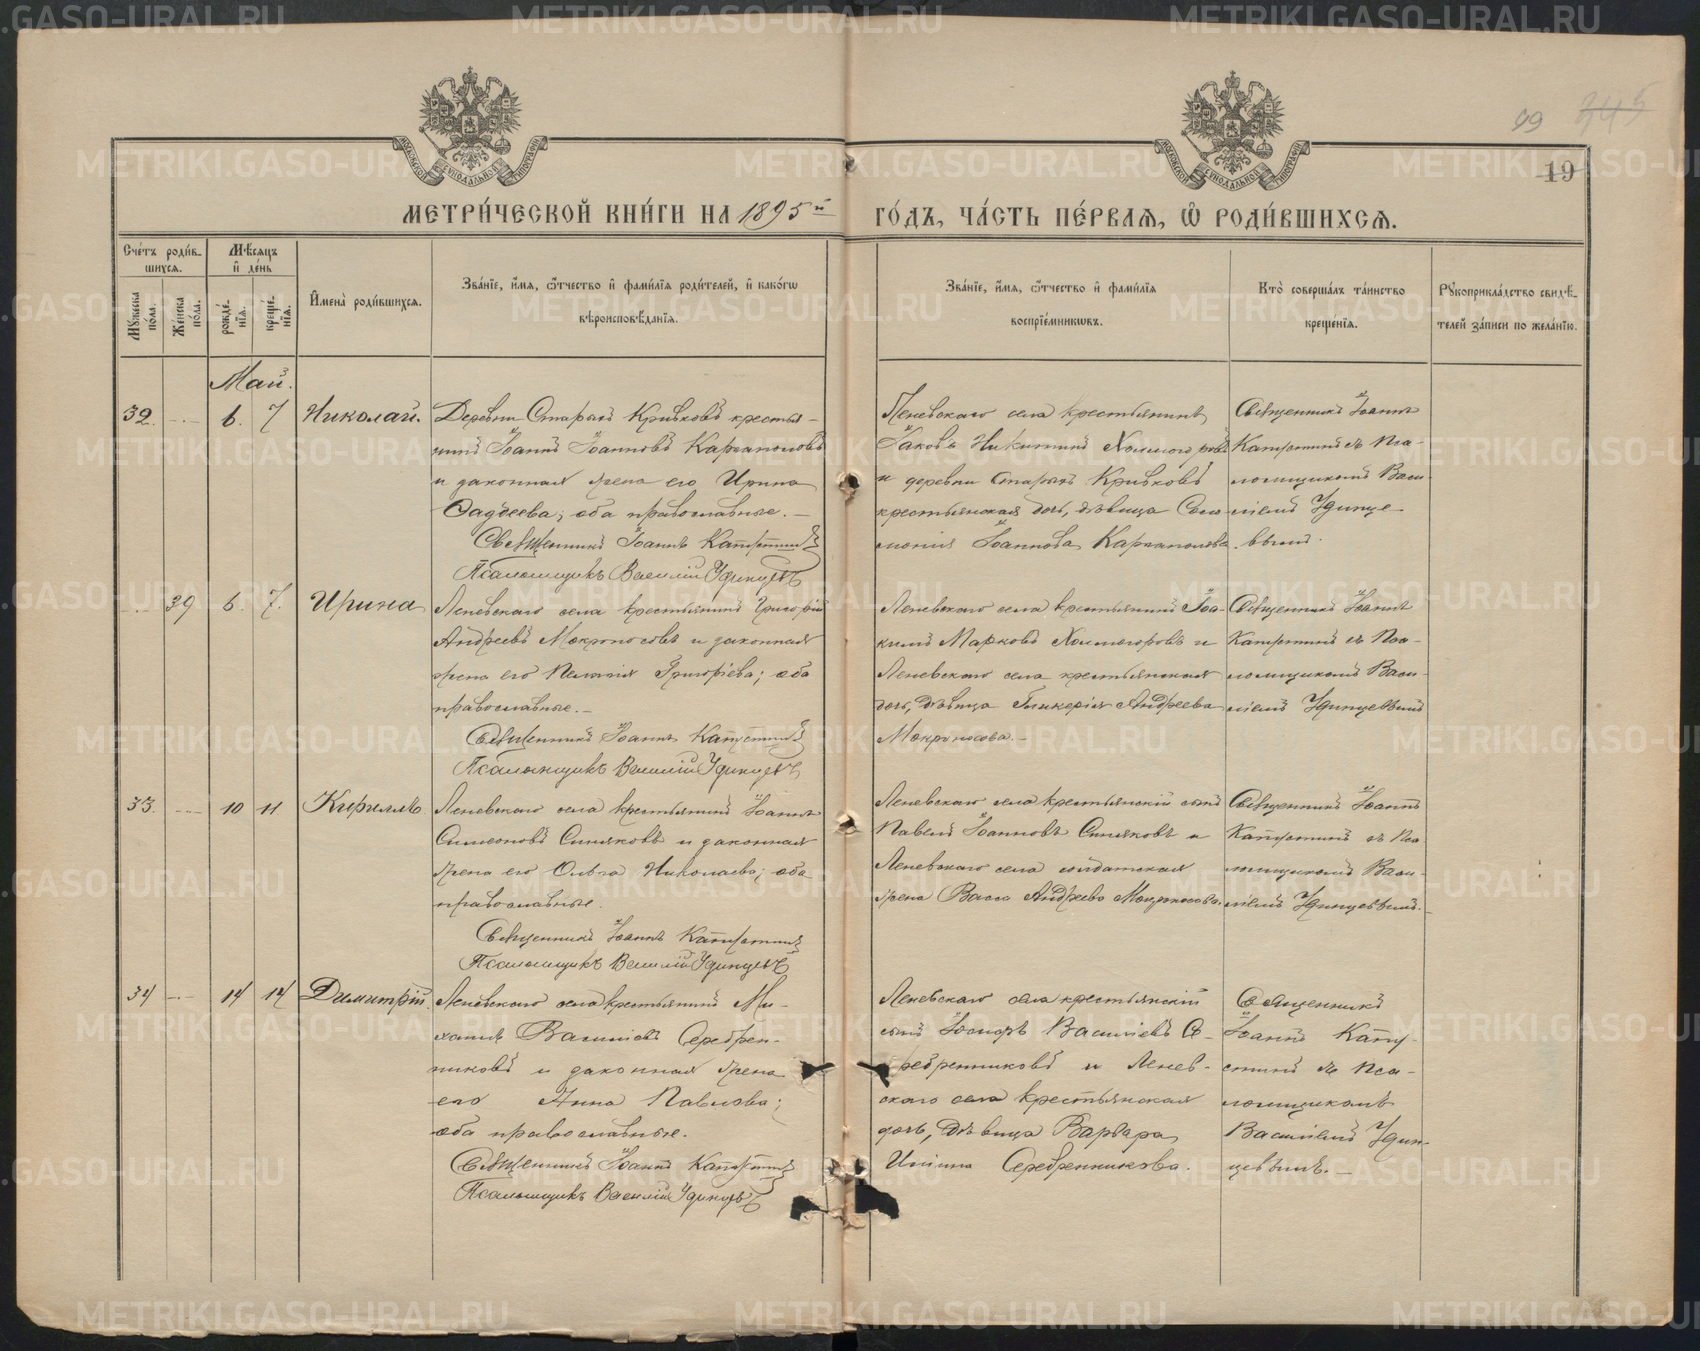 99 245
19
МЕТРИ́ЧЕСКОЙ КНИ́ГИ НА 1895й ГО́ДЪ, ЧА́СТЬ ПЕ́РВАѦ, Ѽ РОДИ́ВШИХСѦ.
Сче́тъ роди́вшихсѧ.
Мꙋжеска по́ла.
Женска по́ла.
Мѣсѧцъ и҆ де́нь
рожде́нїѧ.
креще́нїѧ.
И҆мена̀ роди́вшихсѧ.
Зва́нїе, и҆́мѧ, ѻ҆́тчество и҆ фами́лїѧ роди́телей, и҆ како́гѡ
вѣроисповѣ́данїѧ.
Зва́нїе, и҆́мѧ, ѻ҆́тчество и҆ фами́лїѧ
воспрїе́мникѡвъ.
Кто̀ соверша́лъ та́инство
креще́нїѧ.
Рꙋкоприкла́дство свидѣ́телей за́писи по жела́нїю.
Май.
32. 6. 7 Николай.
Деревни Старыхъ Кривковъ крестья-
нинъ Іоаннъ Іоанновъ Каргаполовъ
и законная жена его Ирина
Фаддеева; оба православные.
Священникъ Іоаннъ Капустинъ
Псаломщикъ Василій Удинцевъ
Леневскаго села крестьянинъ
Іаковъ Никитинъ Холмогоровъ
и деревни Старыхъ Кривковъ
крестьянская дочь, дѣвица Соло-
монія Іоаннова Каргаполова.
Священникъ Іоаннъ
Капустинъ съ Пса-
ломщикомъ Васи-
ліемъ Удинце-
вымъ.
39 6. 7. Ирина
Леневскаго села крестьянинъ Григорій
Андреевъ Мокроносовъ и законная
жена его Пелагія Григоріева; оба
православные.
Священникъ Іоаннъ Капустинъ
Псаломщикъ Василій Удинцевъ
Леневскаго села крестьянинъ Іоа-
кимъ Марковъ Холмогоровъ и
Леневскаго села крестьянская
дочь, дѣвица Гликерія Андреева
Мокроносова.
Священникъ Іоаннъ
Капустинъ съ Пса-
ломщикомъ Васи-
ліемъ Удинцевымъ
33. 10 11 Кириллъ
Леневскаго села крестьянинъ Іоаннъ
Симеоновъ Синяковъ и законная
жена его Ольга Николаева; оба
православные.
Священникъ Іоаннъ Капустинъ
Псаломщикъ Василій Удинцевъ
Леневскаго села крестьянскій сынъ
Павелъ Іоанновъ Синяковъ и
Леневскаго села солдатская
жена Васса Андреева Мокроносова.
Священникъ Іоаннъ
Капустинъ съ Пса
ломщикомъ Васи-
ліемъ Удинцевымъ.
34 14 14 Димитрій.
Леневскаго села крестьянинъ Ми-
хаилъ Василіевъ Серебрен-
никовъ и законная жена
его Анна Павлова;
оба православные.
Священникъ Іоаннъ Капустинъ
Псаломщикъ Василій Удинцевъ
Леневскаго села крестьянскій
сынъ Василіевъ Се-
ребренниковъ и Ленев-
скаго села крестьянская
дочь, дѣвица Варвара
Серебренникова.
Священникъ
Іоаннъ Капу-
стинъ съ Пса-
ломщикомъ
Василіемъ Удин-
цевымъ.